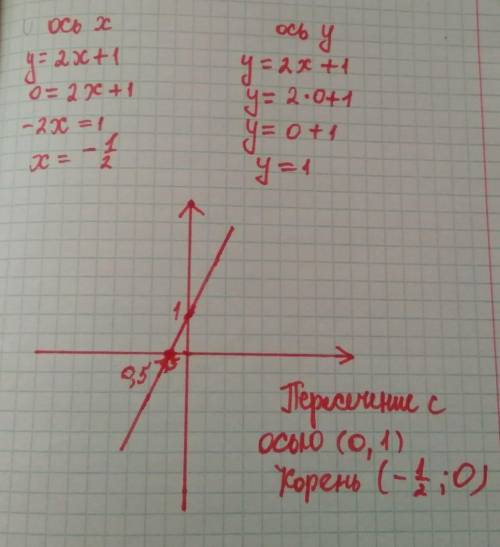 ось x
y = 2x+1
0 = 2x+1
-2x = 1
x = -1/2
ось y
y = 2x+1
y = 2·0+1
y = 0+1
y = 1
1
0,5
Пересечение с
осью (0,1)
Корень (-1/2;0)